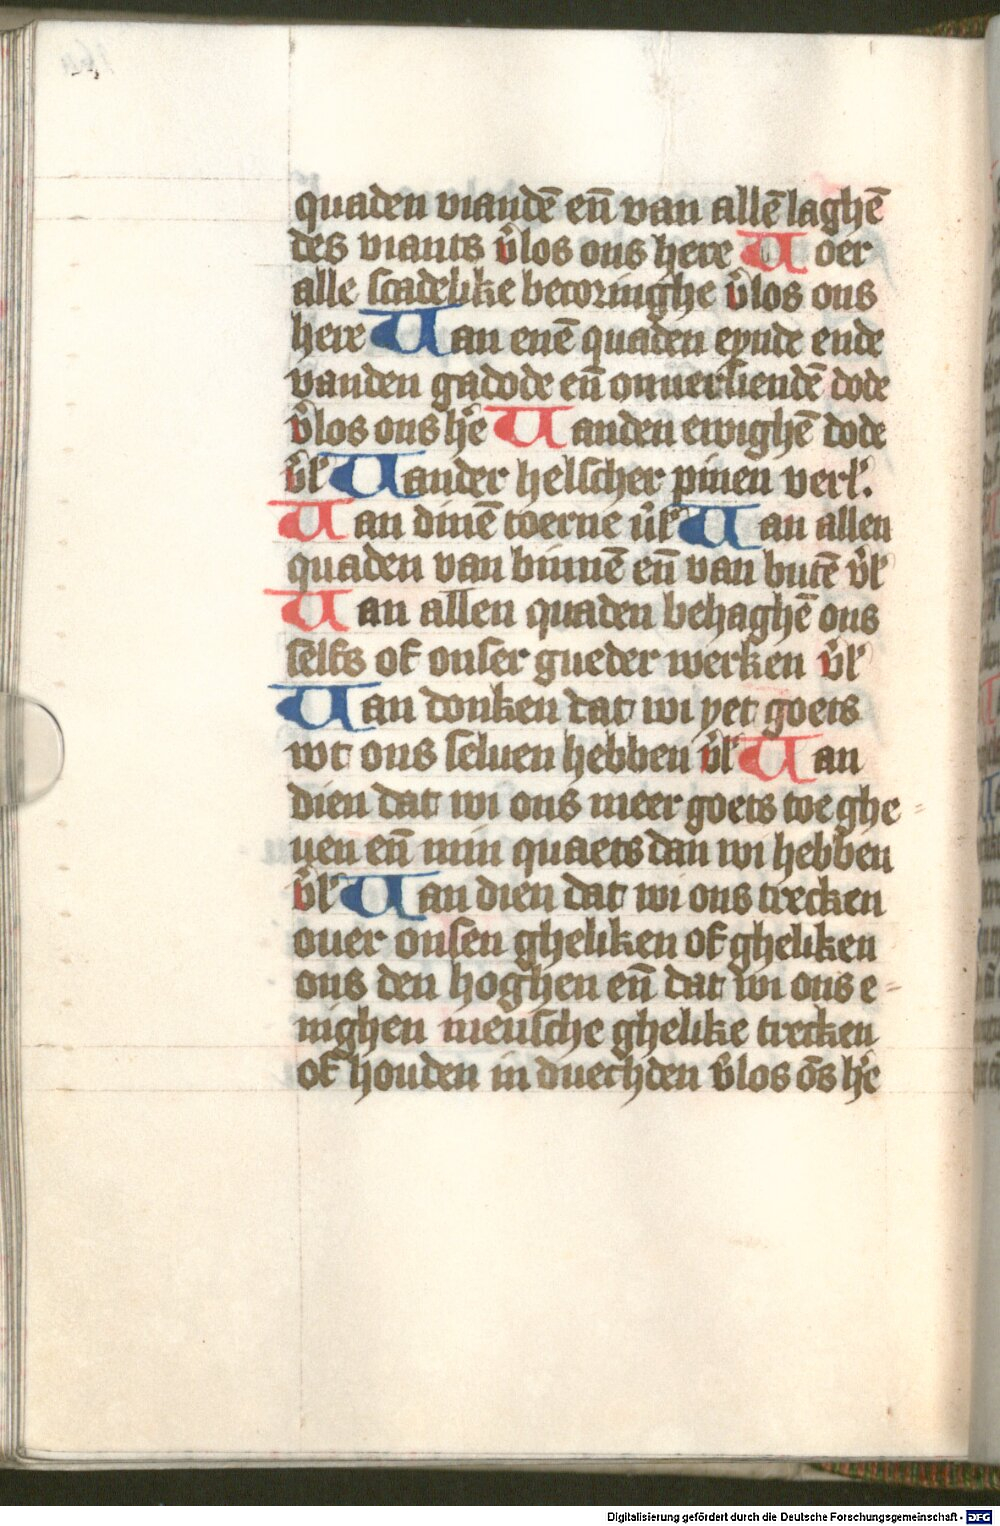 quaden viandē en̄ van allē laghē
des viants v̾los ons here Voer
alle scadelike becoringhe v̾los ons
here Van enē quaden eynde ende
vanden gadode en̄ onuersiendē dode
v̾los ons h̾e Vanden ewighē dode
v̾l' Vander helscher pinen verl'.
Van dinē toerne v̾l' Van allen
quaden van binnē en̄ van butē v̾l'
Van allen quaden behaghē ons
selfs of onser gueder werken v̾l'
Van donken dat wi yet goets
wt ons seluen hebben v̾l' Van
dien dat wi ons meer goets toe ghe=
uen en̄ min quaets dan wi hebben
v̾l' Van dien dat wi ons trecken
ouer onsen gheliken of gheliken
ons den hoghen en̄ dat wi ons e=
nighen mensche ghelike trecken
of houden in duechden v̾los ōs h̾e
Digitalisierung gefördert durch die Deutsche Forschungsgemeinschaft - DFG